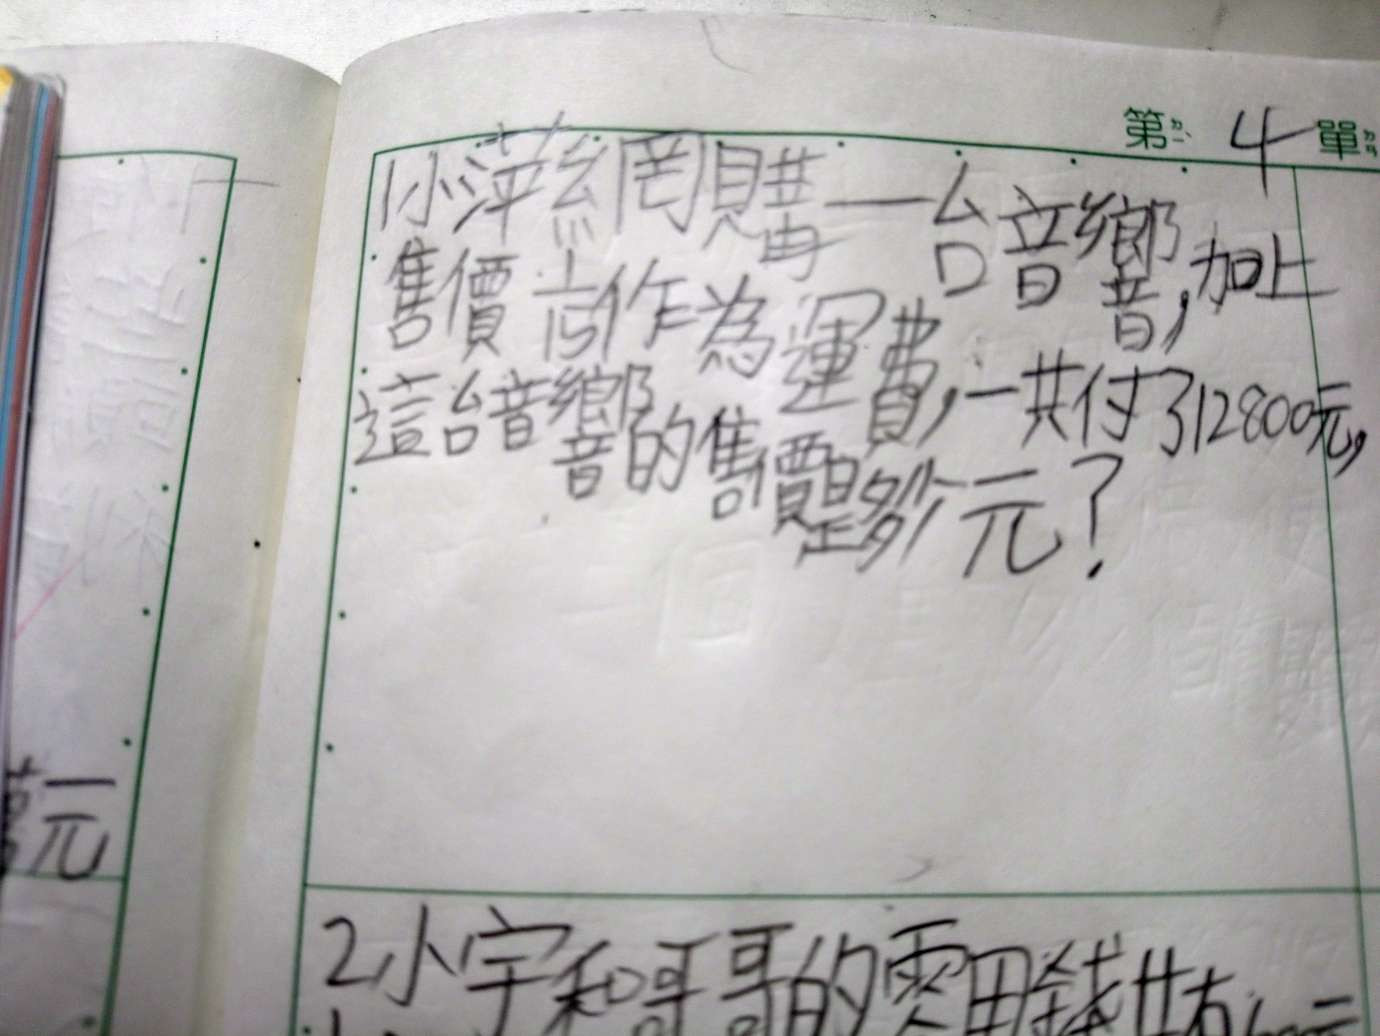 第 4 單
1小萍網購一台音響,加上
售價 作為運費,一共付了12800元,
這台音響的售價是多少元?
元
2小宇和哥哥的零用錢共有